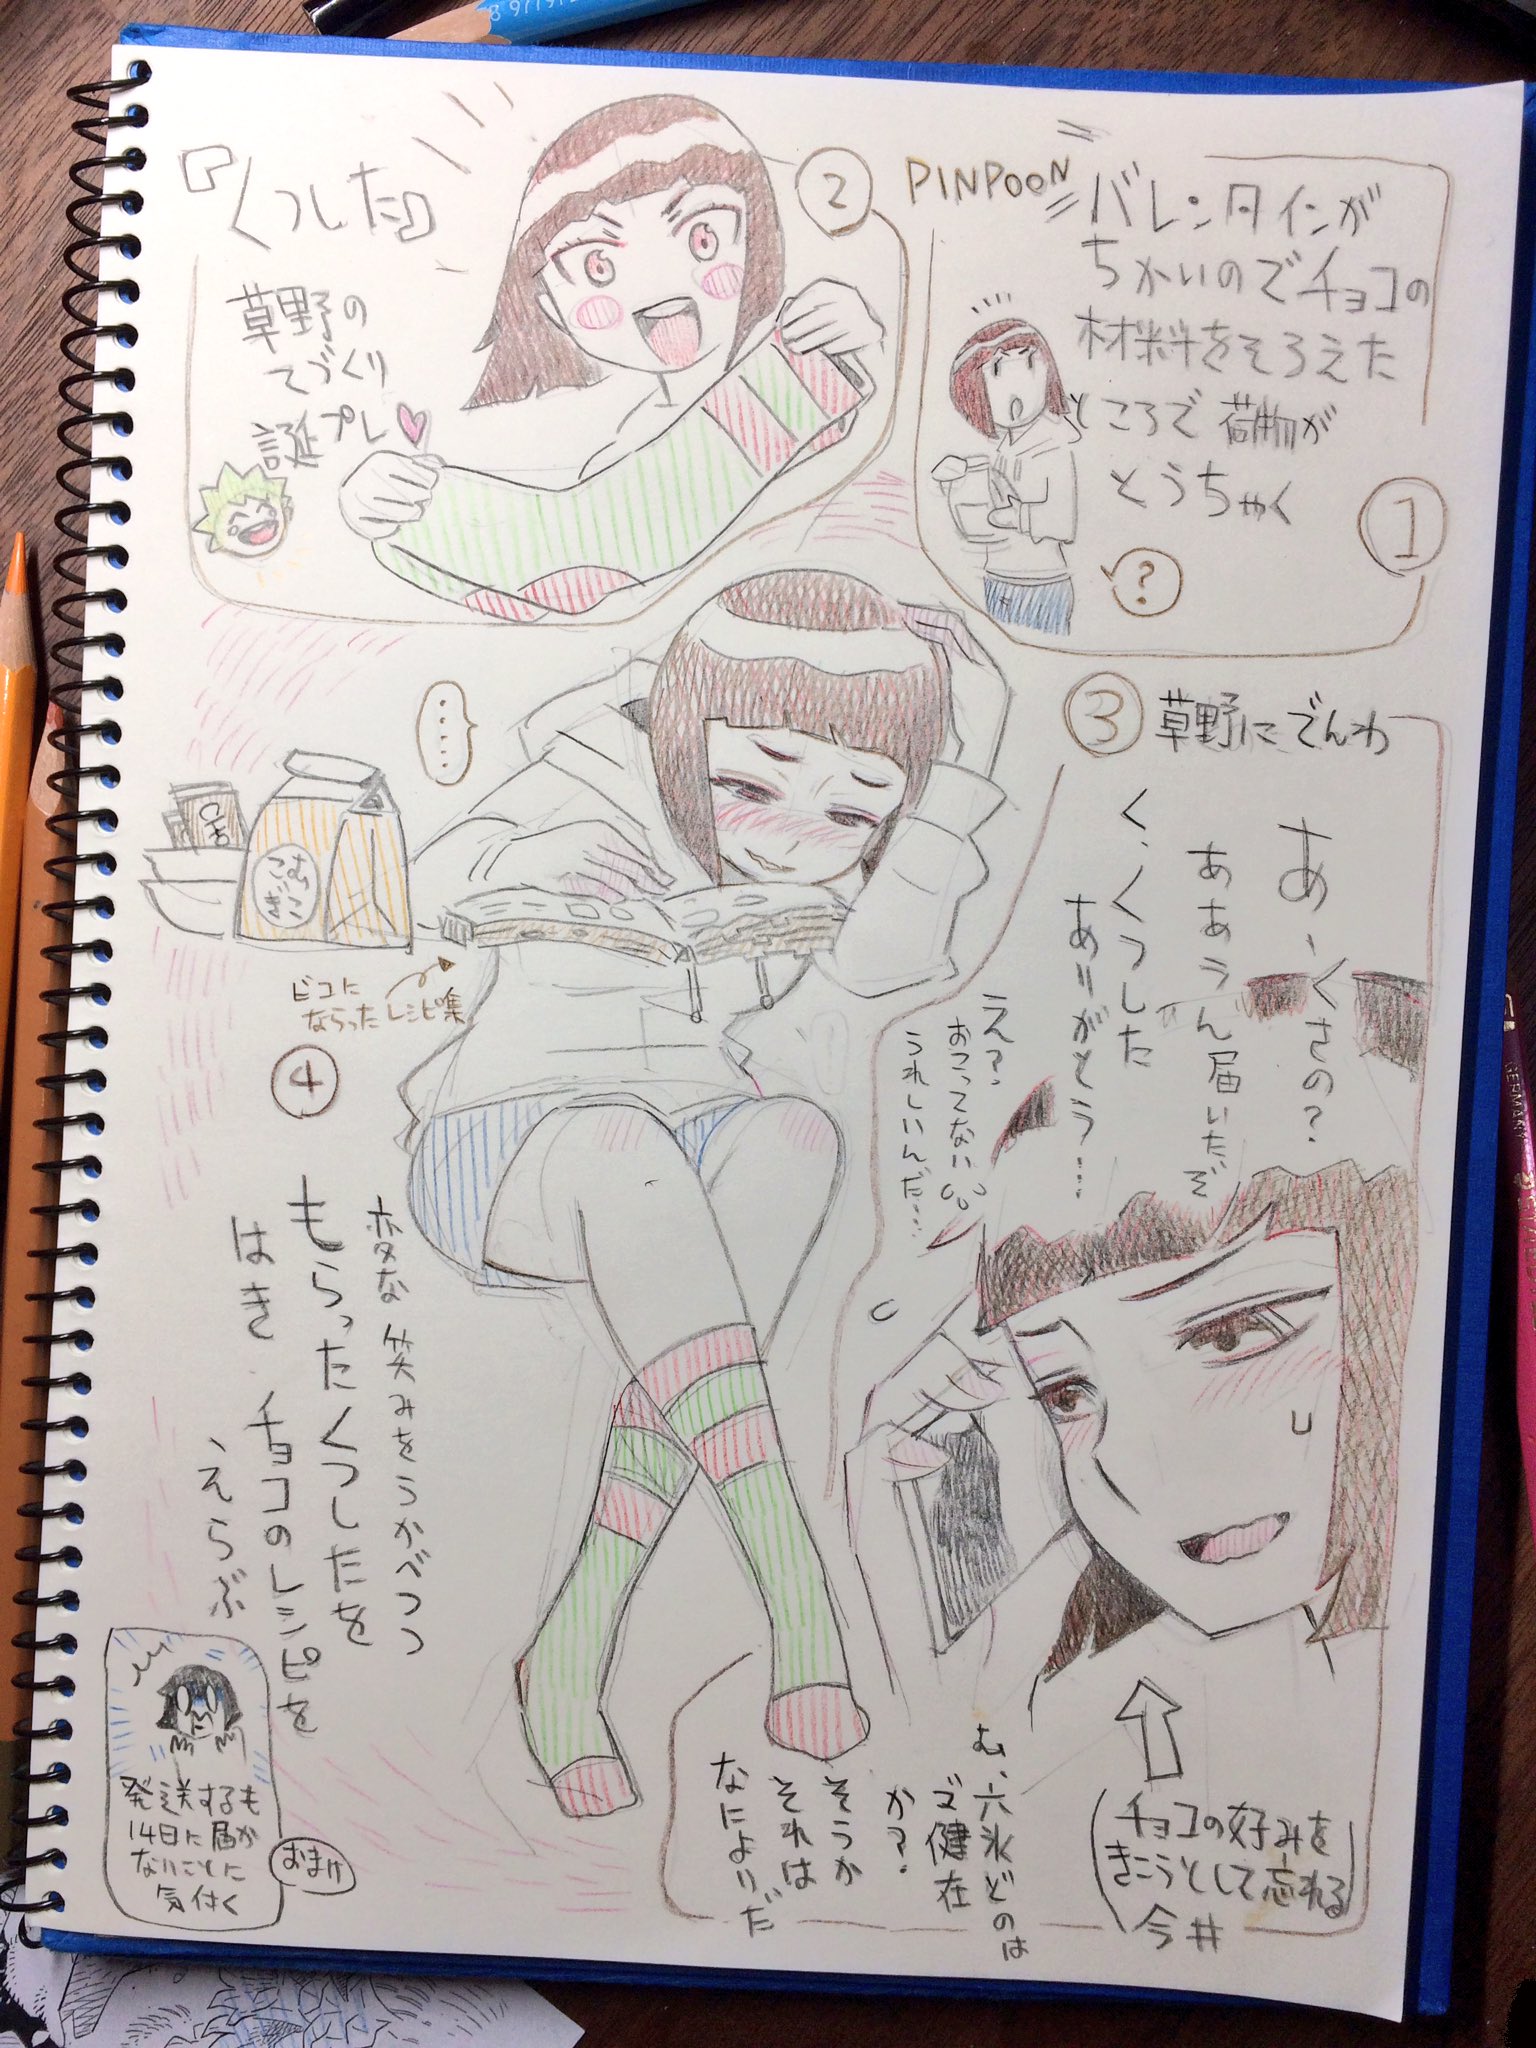 PINPOON
バレンタインが
ちかいのでチョコの
材料をそろえた
ところで荷物が
とうちゃく
1
?
2
『くつした』
草野の
てづくり
誕プレ
3
草野にでんわ
あ、くさの?
ああうん届いたぞ
く、くつした
ありがとう…
え?
おこってない
うれしいんだ…
む、六氷どのは
ご健在
か?
そうか
それは
なによりだ
(チョコの好みを
きこうとして忘れる)
今井
……
こむぎこ
ビコに
ならったレシピ集
4
変な笑みをうかべつつ
もらったくつしたを
はき、チョコのレシピを
えらぶ
発送するも
14日に届か
ないことに
気付く
おまけ
GERMANY